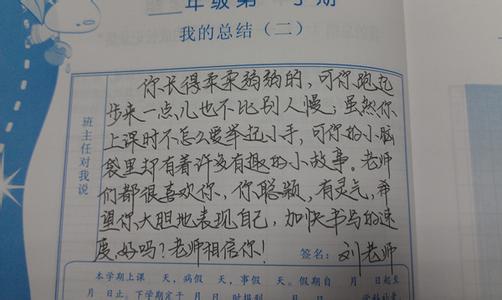 年级第 学期
我的总结(二)
班主任对我说
你长得柔柔弱弱的,可你跑起
步来一点儿也不比别人慢;虽然你
上课时不怎么爱举起小手,可你的小脑
袋里却有着许多有趣的小故事。老师
们都很喜欢你,你聪颖,有灵气,希
望你大胆地表现自己,加快书写的速
度,好吗?老师相信你!
签名:刘老师
本学期上课 天,病假 天,事假 天。假期自 月 日起至
月 日止。下学期定于 月 日